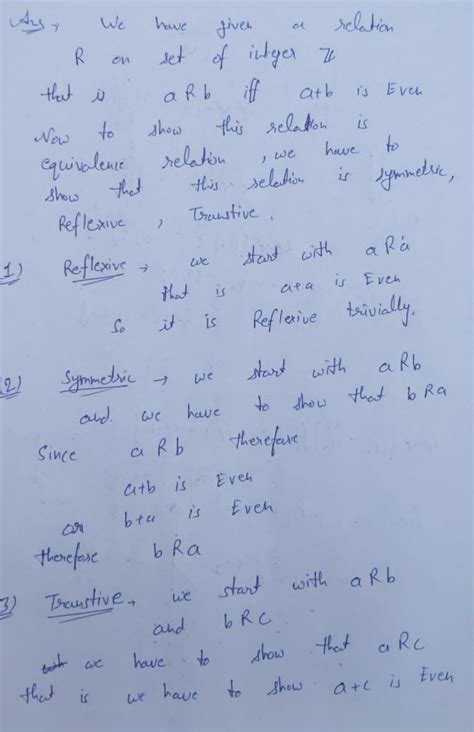 Ans, We have given a relation
R on set of integer ℤ
that is aRb iff a+b is Even
Now to show this relation is
equivalence relation, we have to
show that this relation is symmetric,
Reflexive, Transtive.
1) Reflexive → we start with aRa
that is a+a is Even
So it is Reflexive trivially.
(2) Symmetric → we start with aRb
and we have to show that bRa
Since aRb therefore
a+b is Even
or b+a is Even
therefore bRa
3) Transtive → we start with aRb
and bRC
we have to show that aRC
that is we have to show a+c is Even